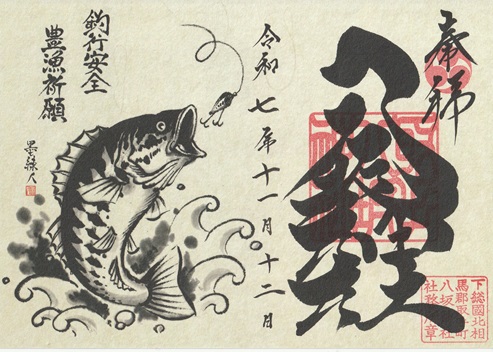 奉拝
八坂神社
令和七年十一月十二日
釣行安全
豊漁祈願
下總國北相
馬郡取手町
八坂神社
社務所之章